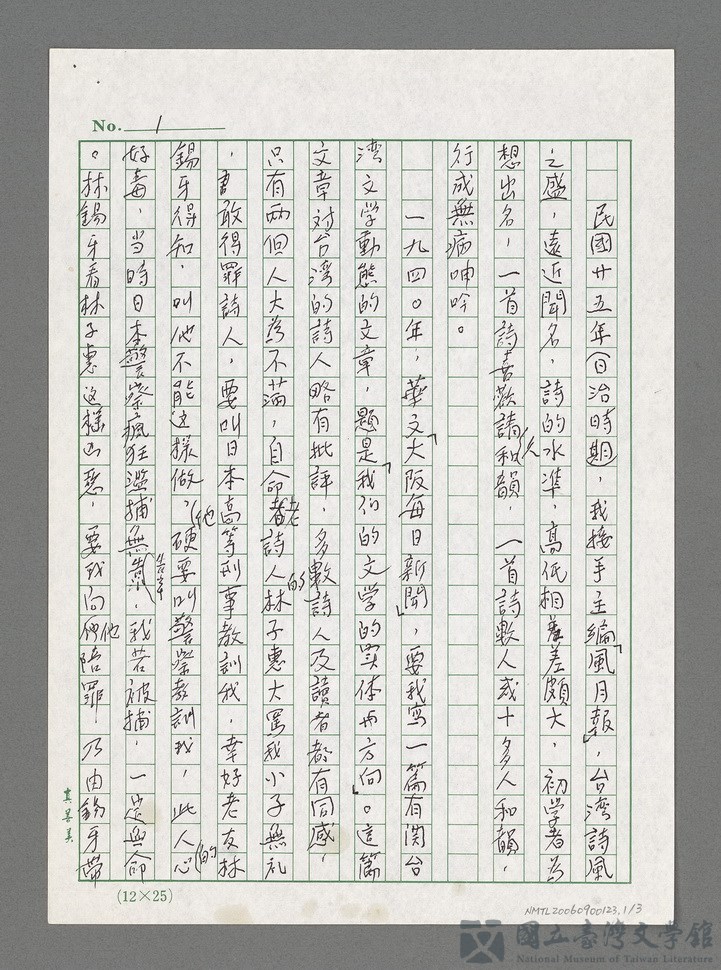 No. 1
民國廿五年(日治時期)，我接手主編「風月報」，台湾詩風
之盛，遠近聞名，詩的水準，高低相差頗大，初學者為
想出名，一首詩喜歡請人和韻，一首詩數人或十多人和韻，
行成無病呻吟。
一九四〇年，華文「大阪每日新聞」，要我寫一篇有関台
湾文学動態的文章，題是「我们的文学的実体与方向」。這篇
文章对台湾的詩人略有批評，多數詩人及讀者都有同感，
只有兩個人大為不滿，自命老詩人的林子惠大罵我小子無礼
，敢得罪詩人，要叫日本高等刑事教訓我，幸好老友林
錫牙得知，叫他不能这樣做，他硬要叫警察教訓我，此人心的
好毒，当時日本警察瘋狂濫捕無辜，我若被捕，一定無命
。林錫牙看林子惠这樣凶惡，要我向他陪罪，乃由錫牙帶
(12×25)
NMTL20060900123,1/3
國立臺灣文學館
National Museum of Taiwan Literature